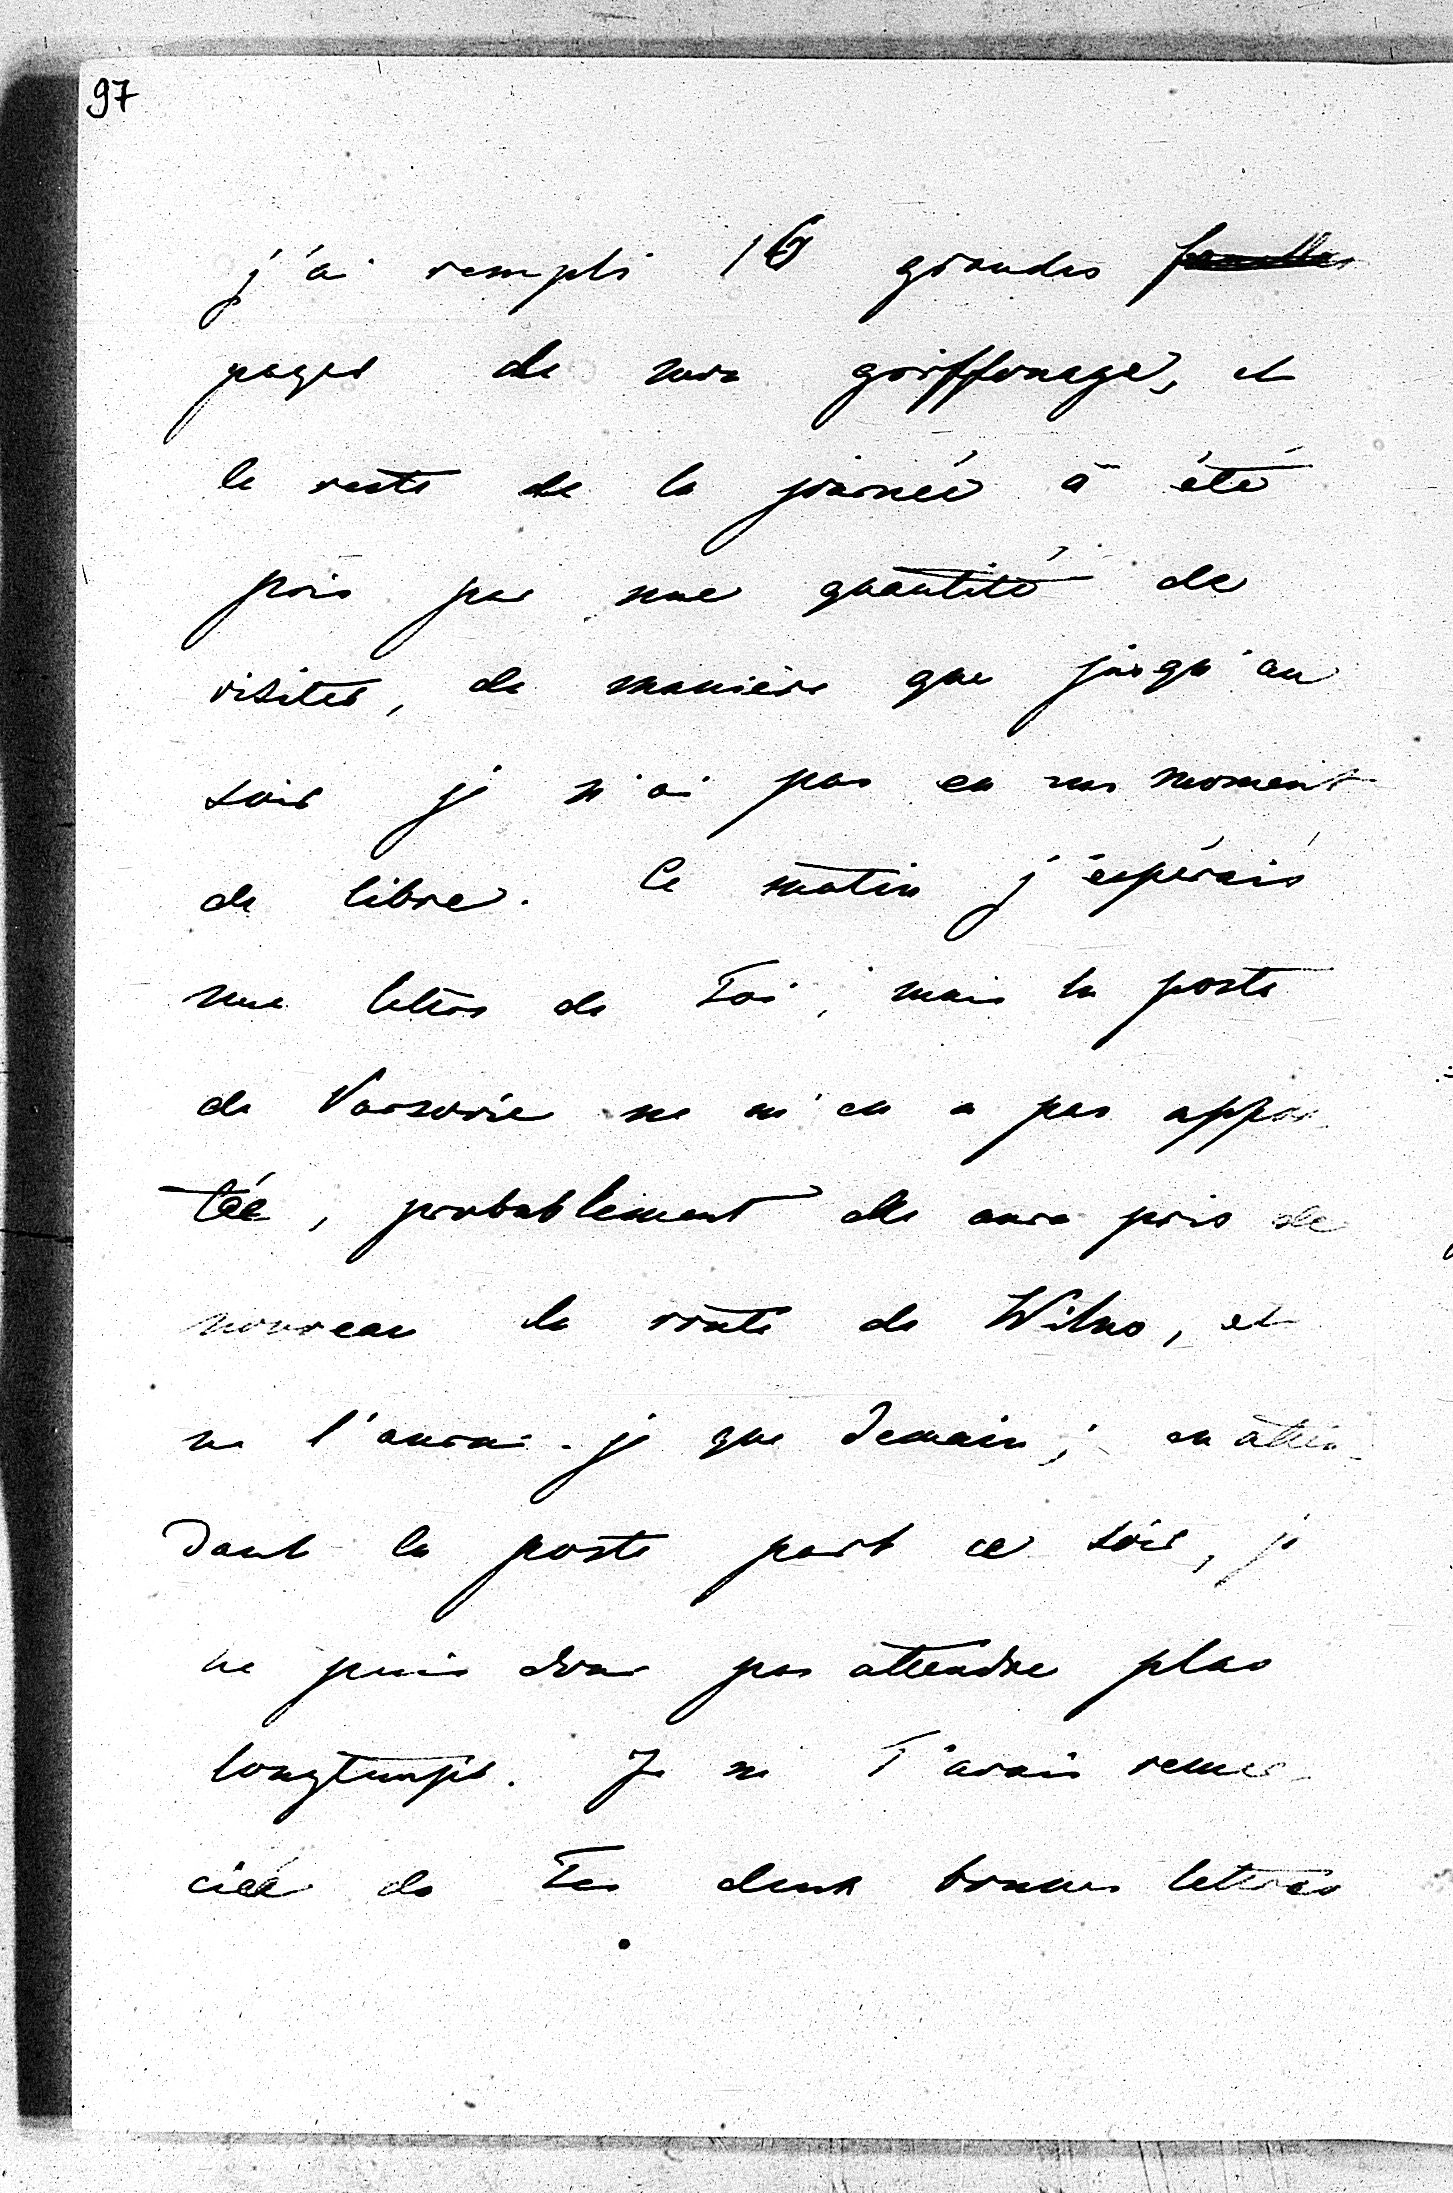 97
j'ai rempli 16 grandes feuilles
pages de mon griffonage, et
le reste de la journée a été
pris par une quantité de
visites, de manière que jusqu'au
soir je n'ai pas eu un moment
de libre. Ce matin j'éspérais
une lettre de Toi, mais la poste
de Varsovie ne m'en a pas appor
tée, probablement elle aura pris de
nouveau la route de Wilno, et
ne l'aurai-je que demain; en atten-
dant la poste part ce soir, je
ne puis donc pas attendre plus
longtemps. Je ne T'avais remer-
ciée de Tes deux bonnes lettres